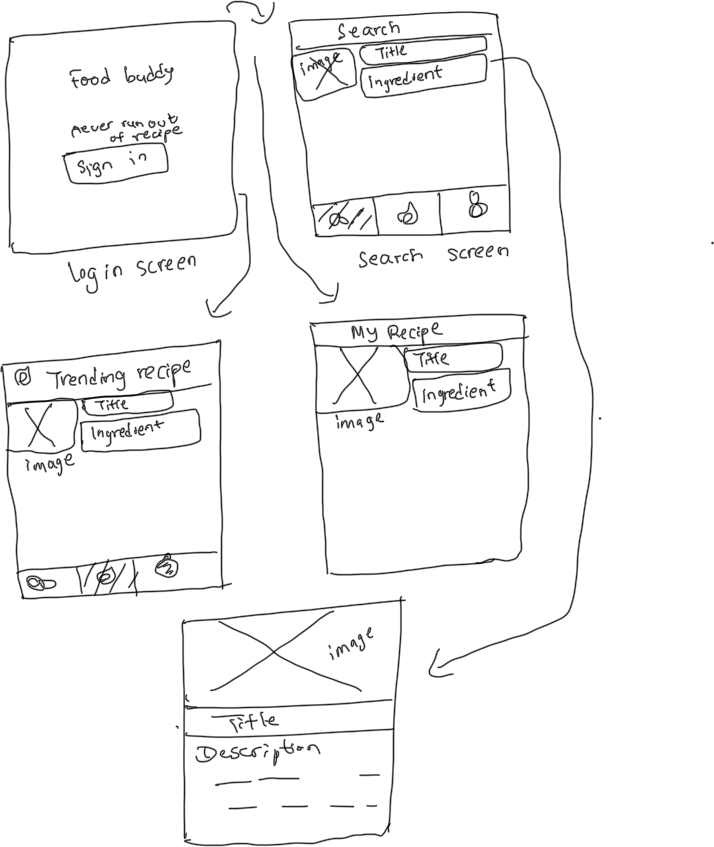 Food buddy
never run out
of recipe
Sign in
Login screen
Search
image
Title
Ingredient
Search screen
Trending recipe
Title
Ingredient
image
My Recipe
Title
Ingredient
image
image
Title
Description